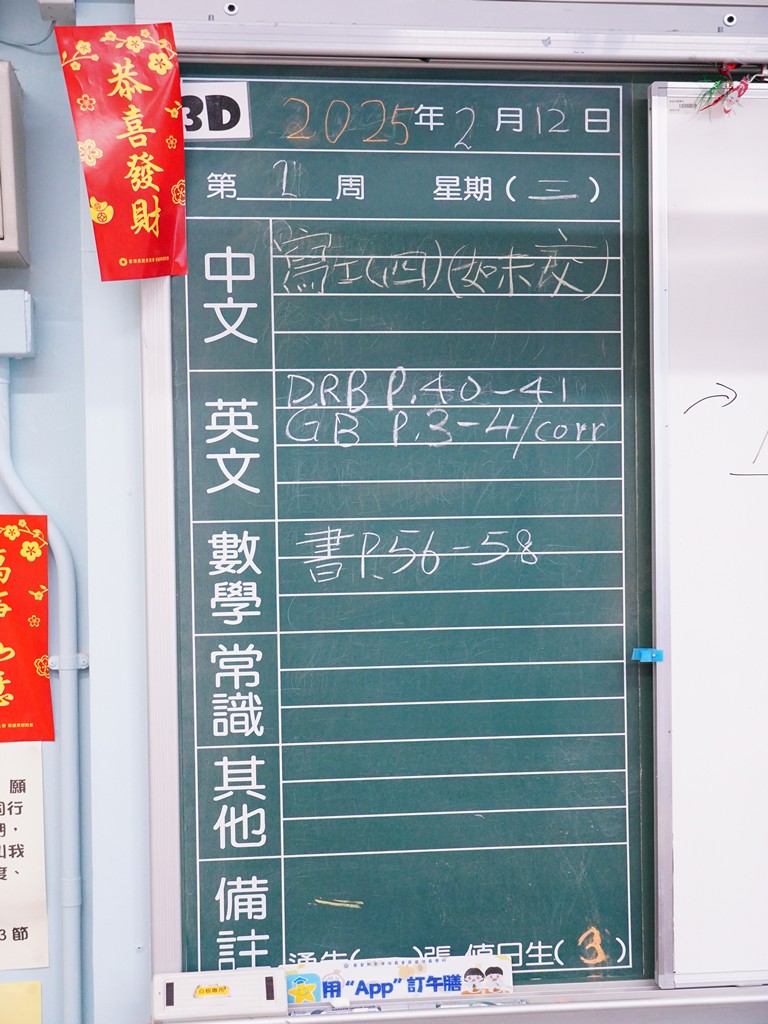 恭喜發財
3D
2025年2月12日
第1周 星期(三)
中文
寫工(四)(如未交)
英文
DRB P.40-41
GB P.3-4/corr
數學
書P.56-58
常識
其他
備註
通告( )張 值日生(3)
用“App”訂午膳
願
同行
我
度、
3節